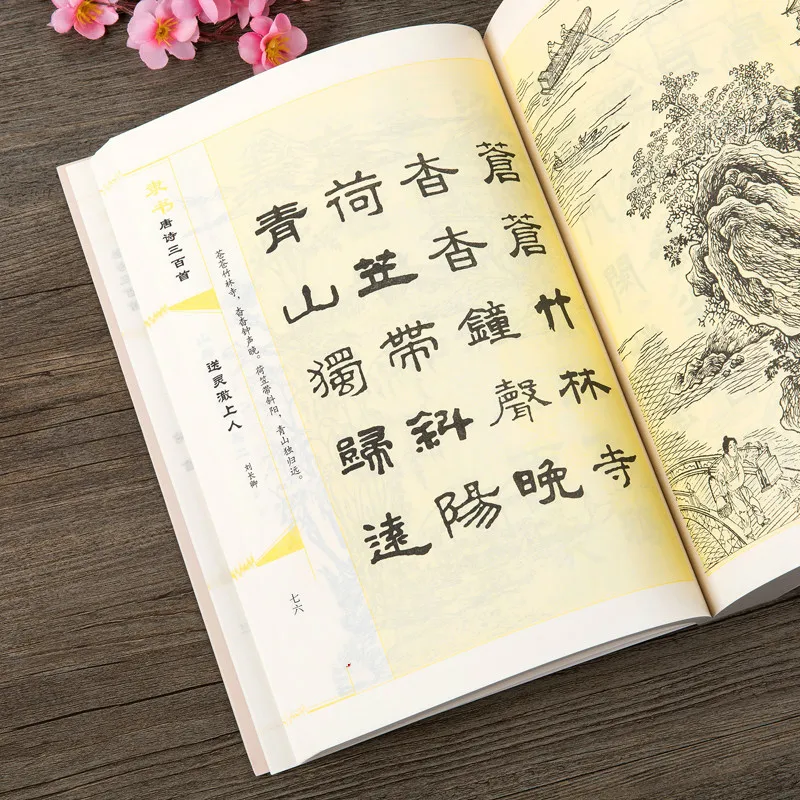 蒼蒼竹林寺
杳杳鐘聲晚
荷笠帶斜陽
青山獨歸遠
苍苍竹林寺，杳杳钟声晚。荷笠带斜阳，青山独归远。
隶书唐诗三百首
送灵澈上人
刘长卿
七六